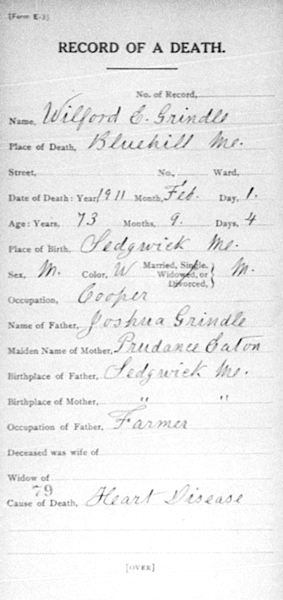 [Form E-3]
RECORD OF A DEATH.
No. of Record,
Name, Wilford E. Grindle
Place of Death, Bluehill Me.
Street, No., Ward,
Date of Death: Year, 1911 Month, Feb. Day, 1.
Age: Years, 73 Months, 9. Days, 4
Place of Birth, Sedgwick Me.
Sex, M. Color, W Married, Single, Widowed, or Divorced, } M.
Occupation, Cooper
Name of Father, Joshua Grindle
Maiden Name of Mother, Prudance Eaton
Birthplace of Father, Sedgwick Me.
Birthplace of Mother, " "
Occupation of Father, Farmer
Deceased was wife of
Widow of
79
Cause of Death, Heart Disease
[OVER]